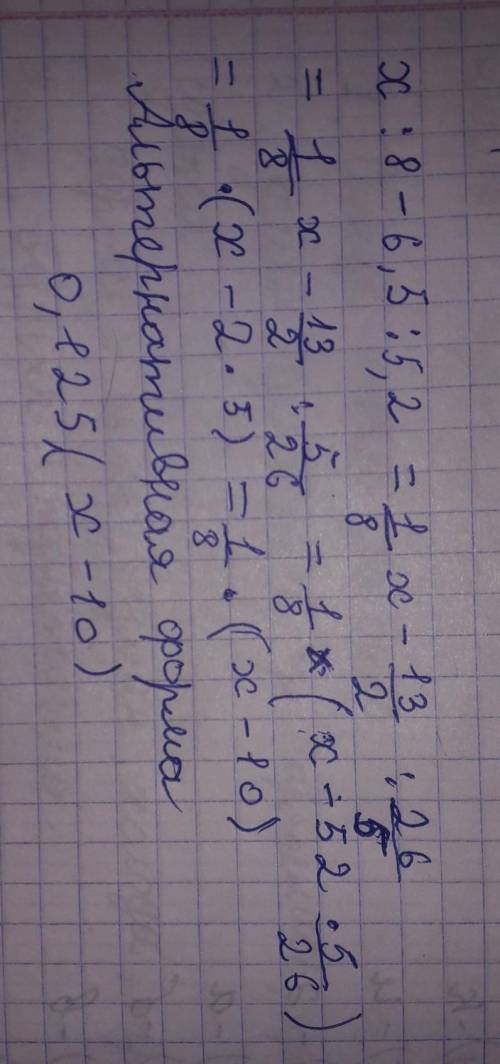 x : 8 - 6,5 : 5,2 = 1/8 x - 13/2 : 26/5
= 1/8 x - 13/2 · 5/26 = 1/8 · (x - 52 · 5/26)
= 1/8 · (x - 2 · 5) = 1/8 · (x - 10)
Альтернативная форма
0,125(x - 10)